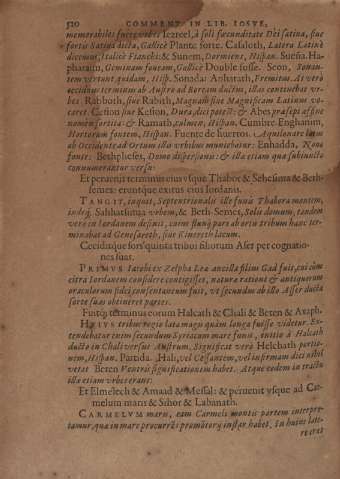 520 COMMENT. IN LIB. IOSVE,
memorabiles fuerunt: vt Iezreel, à soli fœcunditate Dei satina, siue
fortis Satina dicta, Gallicè Plante forte. Casaloth, Latera Latinè
dicemus, Italicè Flanchi: & Sunem, Dormiens, Hispan. Sueña. Ha-
pharaim, Geminam foueam, Gallicè Double fosse. Seon, Sonan-
tem vertunt quidam, Hisp. Sonada: Anaharath, Fremitus. At verò
occiduus terminus ab Austro ad Boream ductus, illas continebat vr-
bes. Rabboth, siue Rabith, Magnam siue Magnificam Latinus vo-
caret. Cesion siue Kesion, Dura, dici potest: & Abes
nomen sortita: & Ramath, culmen, Hispan. Cumbre. Enghanim,
Hortorum fontem, Hispan. Fuente de huertos. Aquilonare latus
ab Occidente ad Ortum illa vrbibus muniebatur: Enhadda, Noui
fontis: Bethpheses, Domo dispersionis: & illa etiam qua subinde
connumerantur versu:
Et peruenit terminus eius vsque Thabor & Sehesima & Beth-
semes: eruntque exitus eius Iordanis.
TANGIT, inquit, Septentrionalis ille funis Thabora montem,
indeq́; Sahhatsima vrbem, & Beth-Semes, Solis domum, tandem
verò in Iordanem desinit, cuius
minabat ad Genesareth, siue Cinereth lacum.
Cecidítque sors quinta tribui filiorum Aser per cognatio-
nes suas.
PRIMVS Iacobi ex Zelpha Lea ancilla filius Gad fuit, cui cùm
citra Iordanem considere contigisset, natura rationi & antiquorum
oraculorum fidei, consentaneum fuit, vt secundus ab illo Asser ducta
sorte suas obtineret partes.
Fuítq; terminus eorum Halcath & Chali & Beten & Axaph.
HVIVS tribus regio lata magis quàm longa fuisse videtur. Ex-
tendebatur enim secundum Syriacum mare funis, initio à Halcath
ducto in Chali versus Austrum. Significat verò Helchath portio-
nem, Hispan. Partida. Hali, vel Cessantem, vel infirmam dici nihil
vetat Beten Ventris significationem habet. Atque eodem in tractu
illa etiam vrbes erant:
Et Elmelech & Amaad & Messal: & peruenit vsque ad Car-
melum maris & Sihor & Labanath.
CARMELVM maris, eam Carmeli montis partem interpre-
tamur, qua in mare procurrẽs promõtorij instar habet. In huius late-
re erat